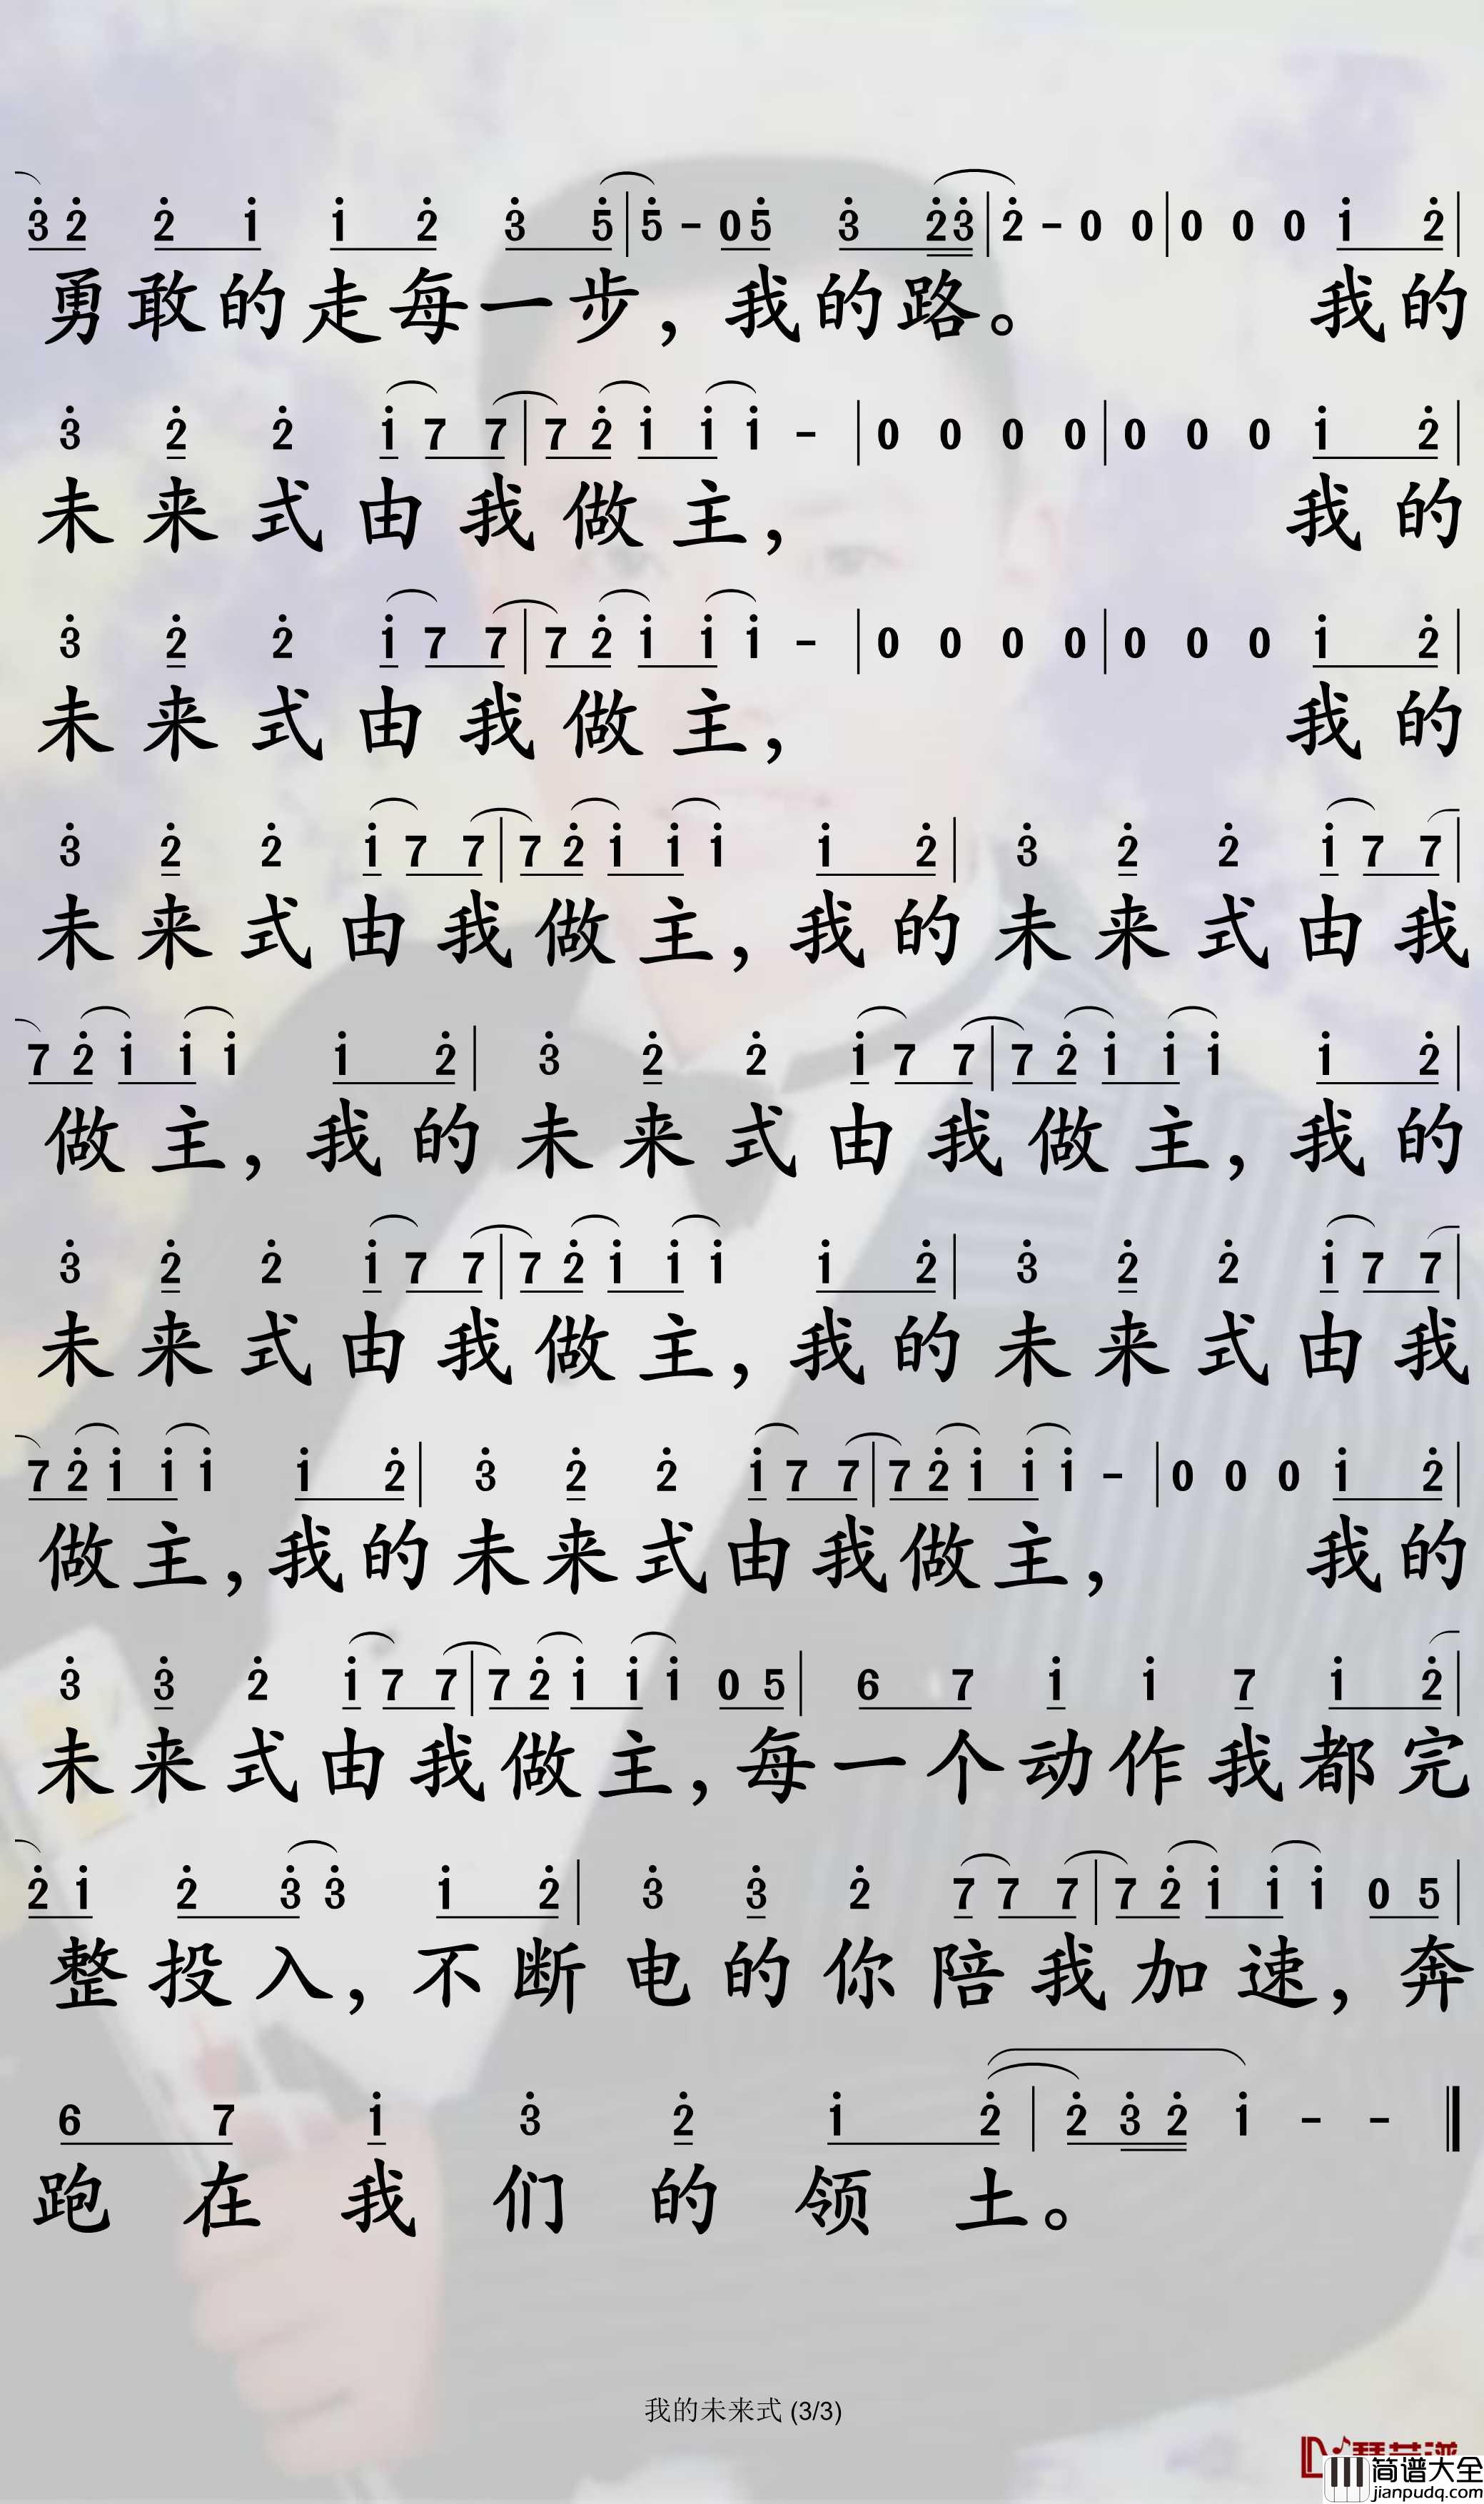 3 2 2 1 1 2 3 5 | 5 - 0 5 3 2 3 | 2 - 0 0 | 0 0 0 1 2 |
勇敢的走每一步，我的路。 我的
3 2 2 1 7 7 | 7 2 1 1 1 - | 0 0 0 0 | 0 0 0 1 2 |
未来式由我做主， 我的
3 2 2 1 7 7 | 7 2 1 1 1 - | 0 0 0 0 | 0 0 0 1 2 |
未来式由我做主， 我的
3 2 2 1 7 7 | 7 2 1 1 1 1 2 | 3 2 2 1 7 7 |
未来式由我做主，我的未来式由我
7 2 1 1 1 1 2 | 3 2 2 1 7 7 | 7 2 1 1 1 1 2 |
做主，我的未来式由我做主，我的
3 2 2 1 7 7 | 7 2 1 1 1 1 2 | 3 2 2 1 7 7 |
未来式由我做主，我的未来式由我
7 2 1 1 1 1 2 | 3 2 2 1 7 7 | 7 2 1 1 1 - | 0 0 0 1 2 |
做主，我的未来式由我做主， 我的
3 3 2 1 7 7 | 7 2 1 1 1 0 5 | 6 7 1 1 7 1 2 |
未来式由我做主，每一个动作我都完
2 1 2 3 3 1 2 | 3 3 2 7 7 7 | 7 2 1 1 1 0 5 |
整投入，不断电的你陪我加速，奔
6 7 1 3 2 1 2 | 2 3 2 1 - - ‖
跑在我们的领土。
我的未来式 (3/3)
简谱大全
jianpudq.com